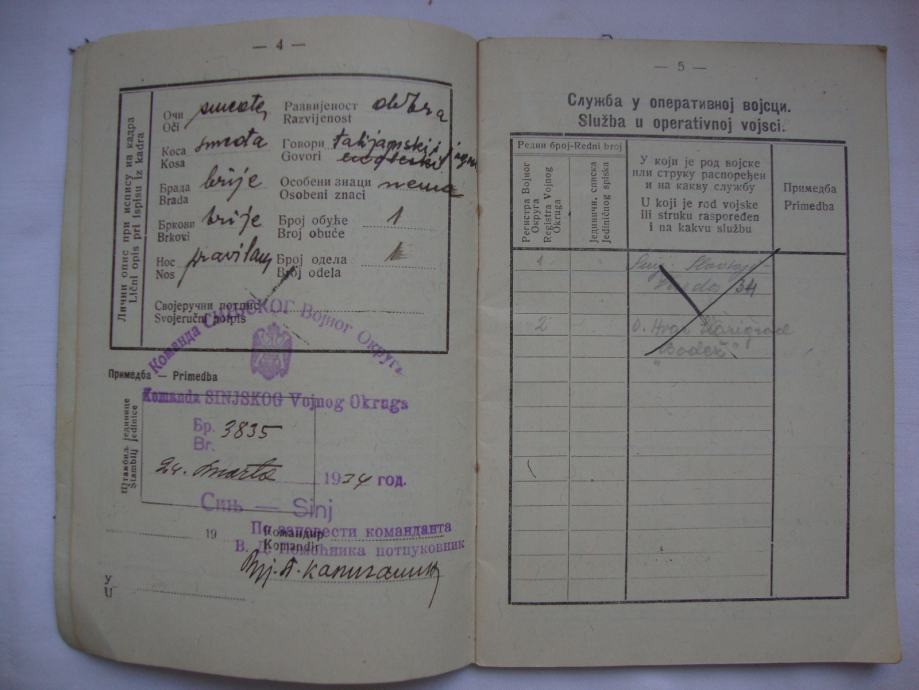 — 4 —
Лични опис при испису из кадра
Lični opis pri ispisu iz kadra
Очи
Oči
Развијеност
Razvijenost
Коса
Kosa
Говори talijanski i
Govori
Брада brije
Brada
Особени знаци nema
Osobeni znaci
Бркови brije
Brkovi
Број обуће 1
Broj obuće
Нос pravilan
Nos
Број одела
Broj odela
Својеручни потпис
Svojeručni potpis
Команда СИЊСКОГ Војног Округа
Примедба — Primedba
Komanda SINJSKOG Vojnog Okruga
Штамбиљ јединице
Štambilj jedinice
Бр. 3835
Br.
24. marta 1934 год.
Сињ — Sinj
19
Командир
Komandir
По заповести команданта
В. Д. помоћника потпуковник
У
U
— 5 —
Служба у оперативној војсци.
Služba u operativnoj vojsci.
Редни број-Redni broj
Регистра Војног Округа
Registra Vojnog Okruga
Јединичн. списка
Jediničnog spiska
У који је род војске
или струку распоређен
и на какву службу
U koji je rod vojske
ili struku raspoređen
i na kakvu službu
Примедба
Primedba
1
34
2